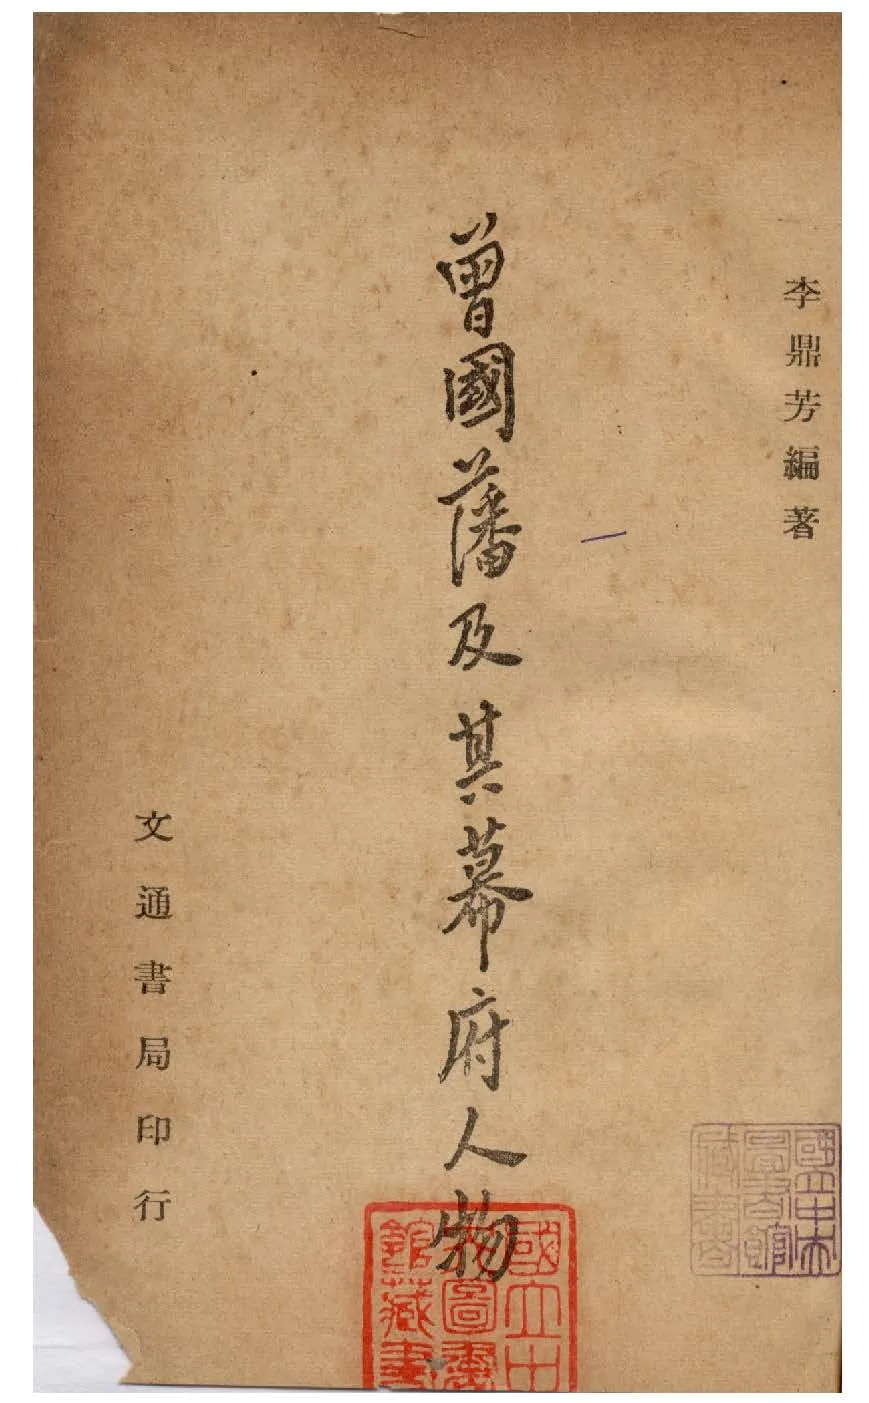 李鼎芳編著
曾國藩及其幕府人物
文通書局印行
國立中
央圖書
館藏書
國立中央
圖書館
藏書